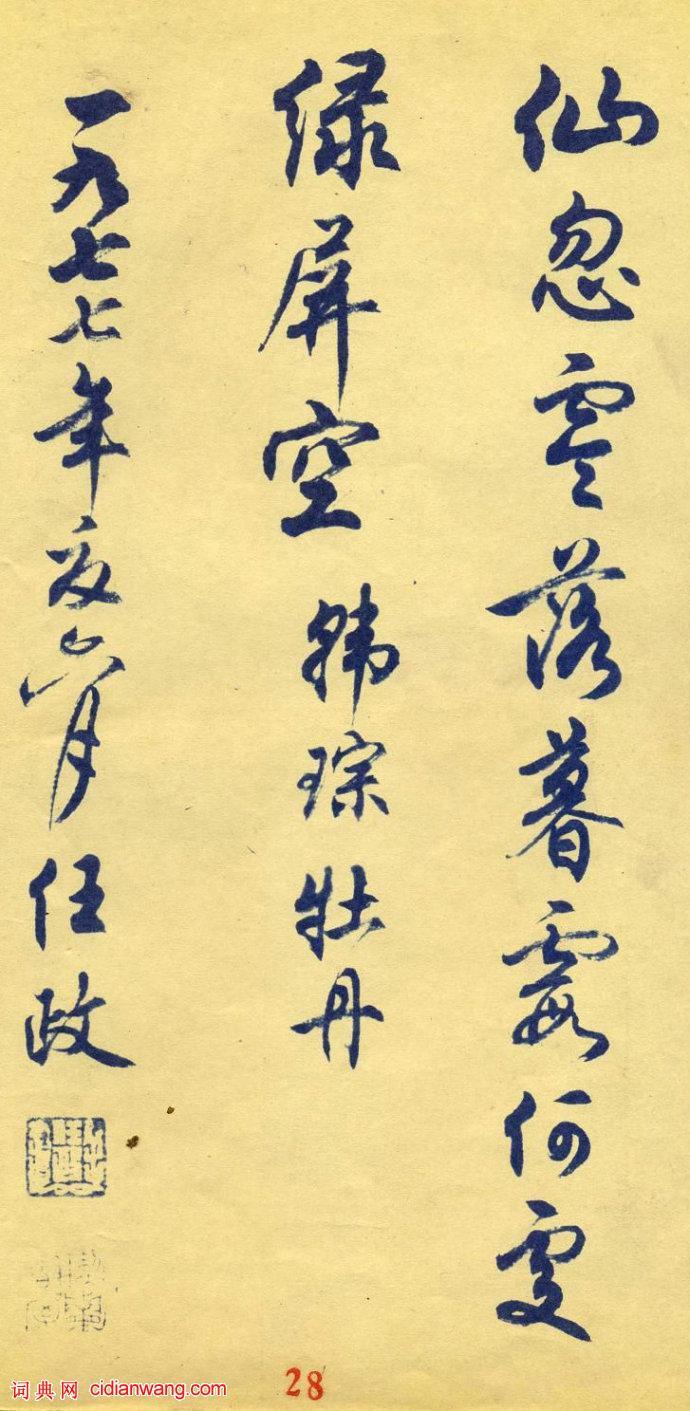 仙忽零落暮霞何處
绿屏空 韩琮牡丹
一九七七年夏六月 任政
28
词典网 cidianwang.com